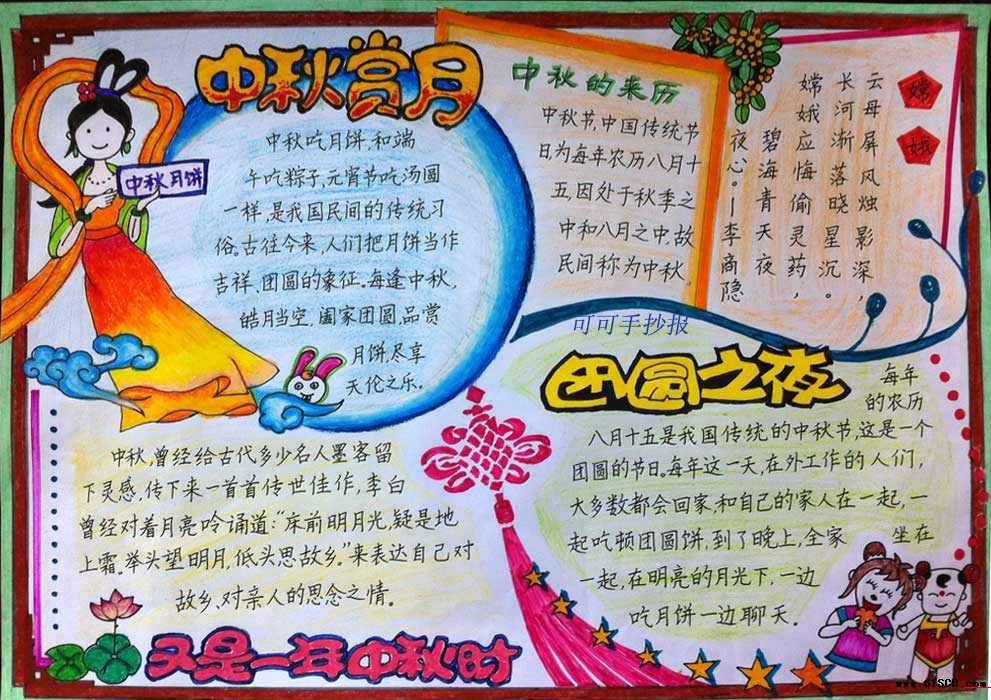 中秋赏月
中秋月饼
中秋吃月饼,和端
午吃粽子,元宵节吃汤圆
一样,是我国民间的传统习
俗。古往今来,人们把月饼当作
吉祥、团圆的象征。每逢中秋,
皓月当空,阖家团圆,品赏
月饼,尽享
天伦之乐。
中秋的来历
中秋节,中国传统节
日为每年农历八月十
五,因处于秋季之
中和八月之中,故
民间称为中秋。
嫦
娥
云母屏风烛影深,
长河渐落晓星沉。
嫦娥应悔偷灵药,
碧海青天夜
夜心。—李商隐
可可手抄报
团圆之夜
每年
的农历
八月十五是我国传统的中秋节,这是一个
团圆的节日。每年这一天,在外工作的人们,
大多数都会回家,和自己的家人在一起,一
起吃顿团圆饼,到了晚上,全家 坐在
一起,在明亮的月光下,一边
吃月饼一边聊天.
中秋,曾经给古代多少名人墨客留
下灵感,传下来一首首传世佳作,李白
曾经对着月亮吟诵道:“床前明月光,疑是地
上霜。举头望明月,低头思故乡。”来表达自己对
故乡、对亲人的思念之情。
又是一年中秋时